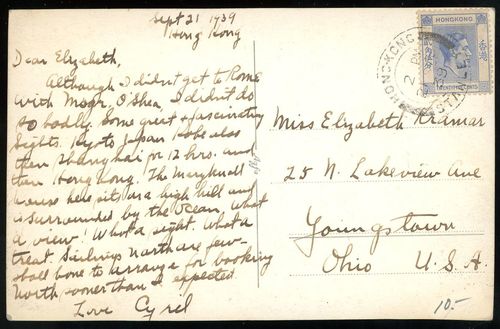 Sept 21 1939
Hong Kong
Dear Elizabeth,
Although I didn't get to Rome
with Msgr. O'Shea, I didn't do
so badly. Some great & fascinating
sights. Kyoto Japan Kobe also
then Shanghai for 12 hrs. and
then Hong Kong. The Maryknoll
house here sits on a high hill and
is surrounded by the ocean. What
a view! What a sight. What a
treat. Sailings north are few
shall have to arrange for booking
north sooner than I expected
Love Cyril
HONGKONG
香港
TWENTY FIVE CENTS
HONG KONG
2 PM
39
Miss Elizabeth Kramar
25 N. Lakeview Ave
Youngstown
Ohio U.S.A.
10.-